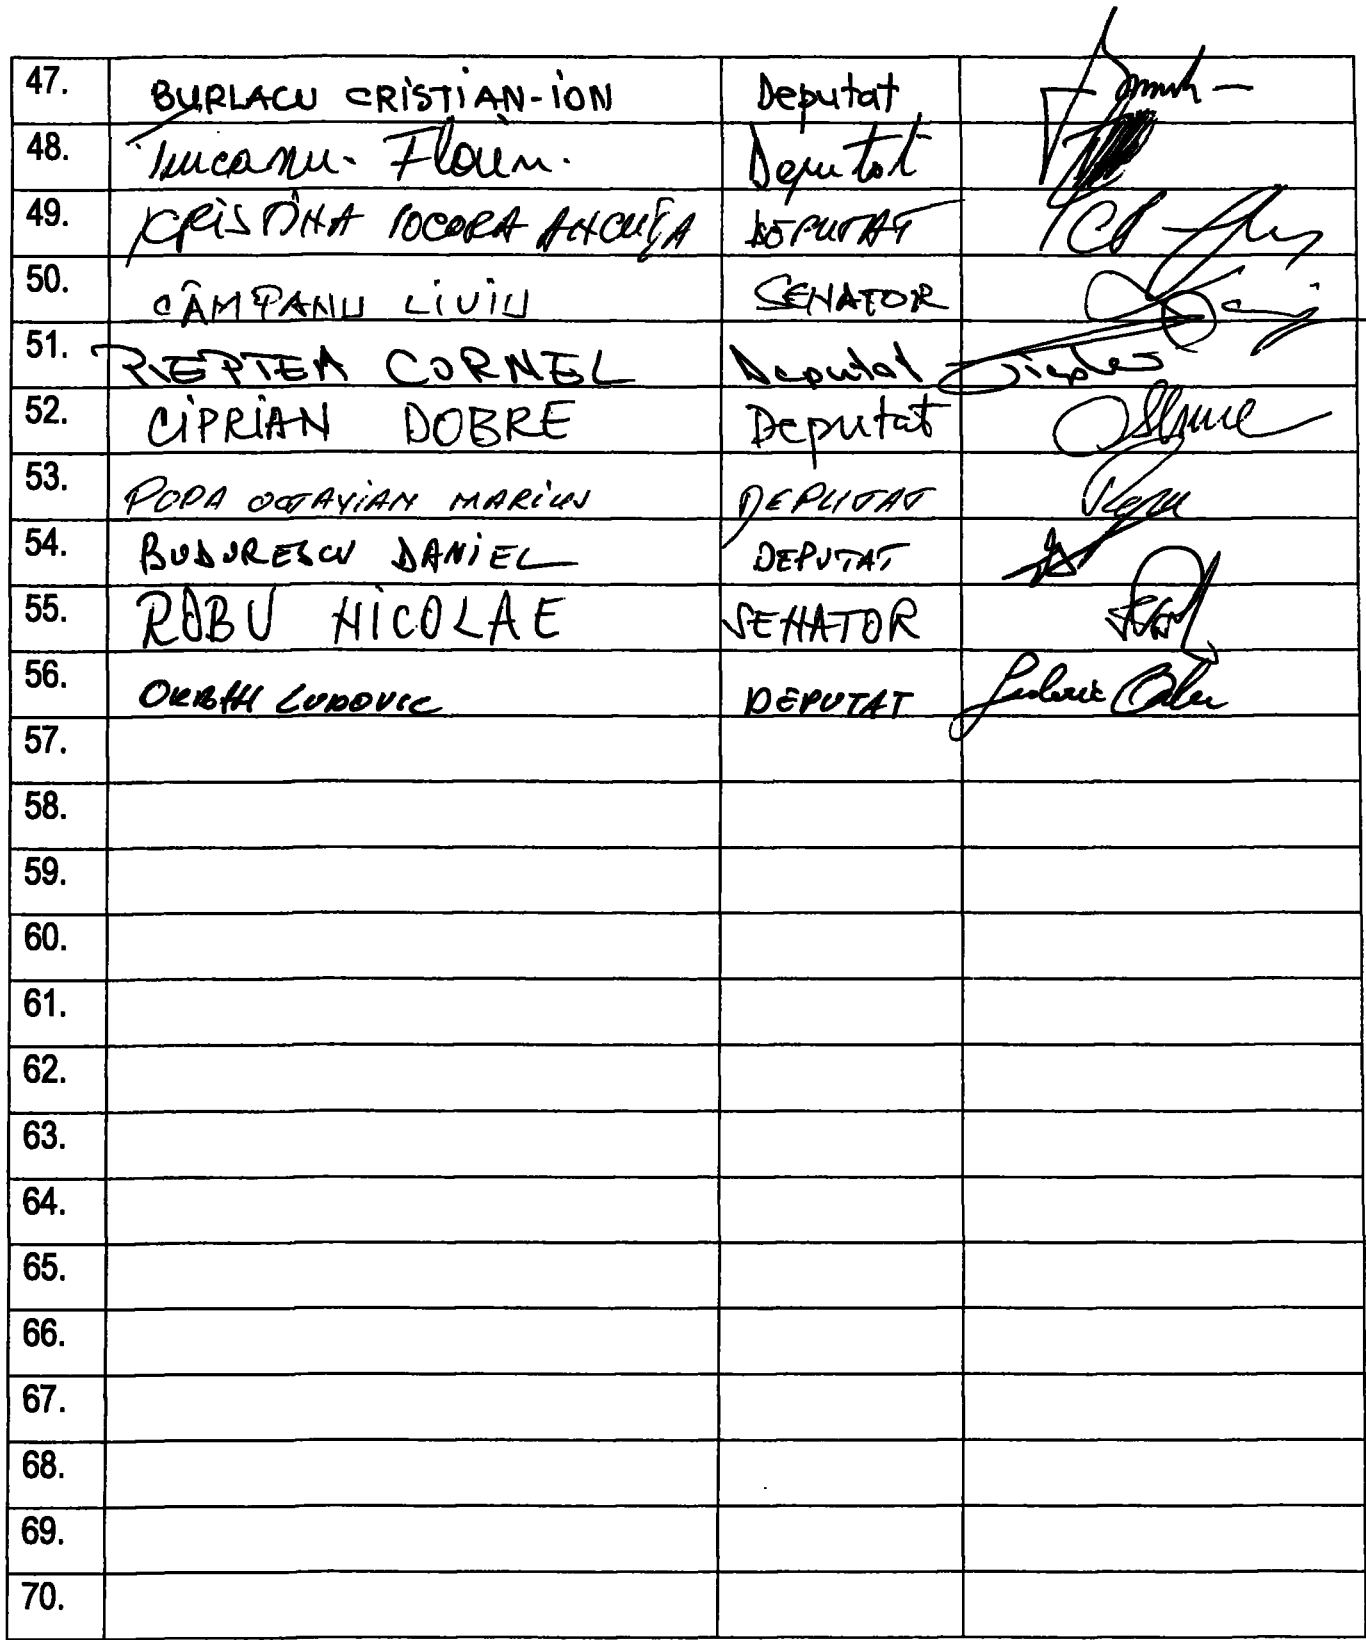 47. BURLACU CRISTIAN-ION Deputat
48. Țurcanu Florin. Deputat
49. CRISTINA POCORA ANCUȚA DEPUTAT
50. CÂMPANU LIVIU SENATOR
51. PIEPTEA CORNEL Deputat
52. CIPRIAN DOBRE Deputat
53. POPA OCTAVIAN MARIUS DEPUTAT
54. BUDURESCU DANIEL DEPUTAT
55. ROBU NICOLAE SENATOR
56. ORBAN LUDOVIC DEPUTAT
57.
58.
59.
60.
61.
62.
63.
64.
65.
66.
67.
68.
69.
70.